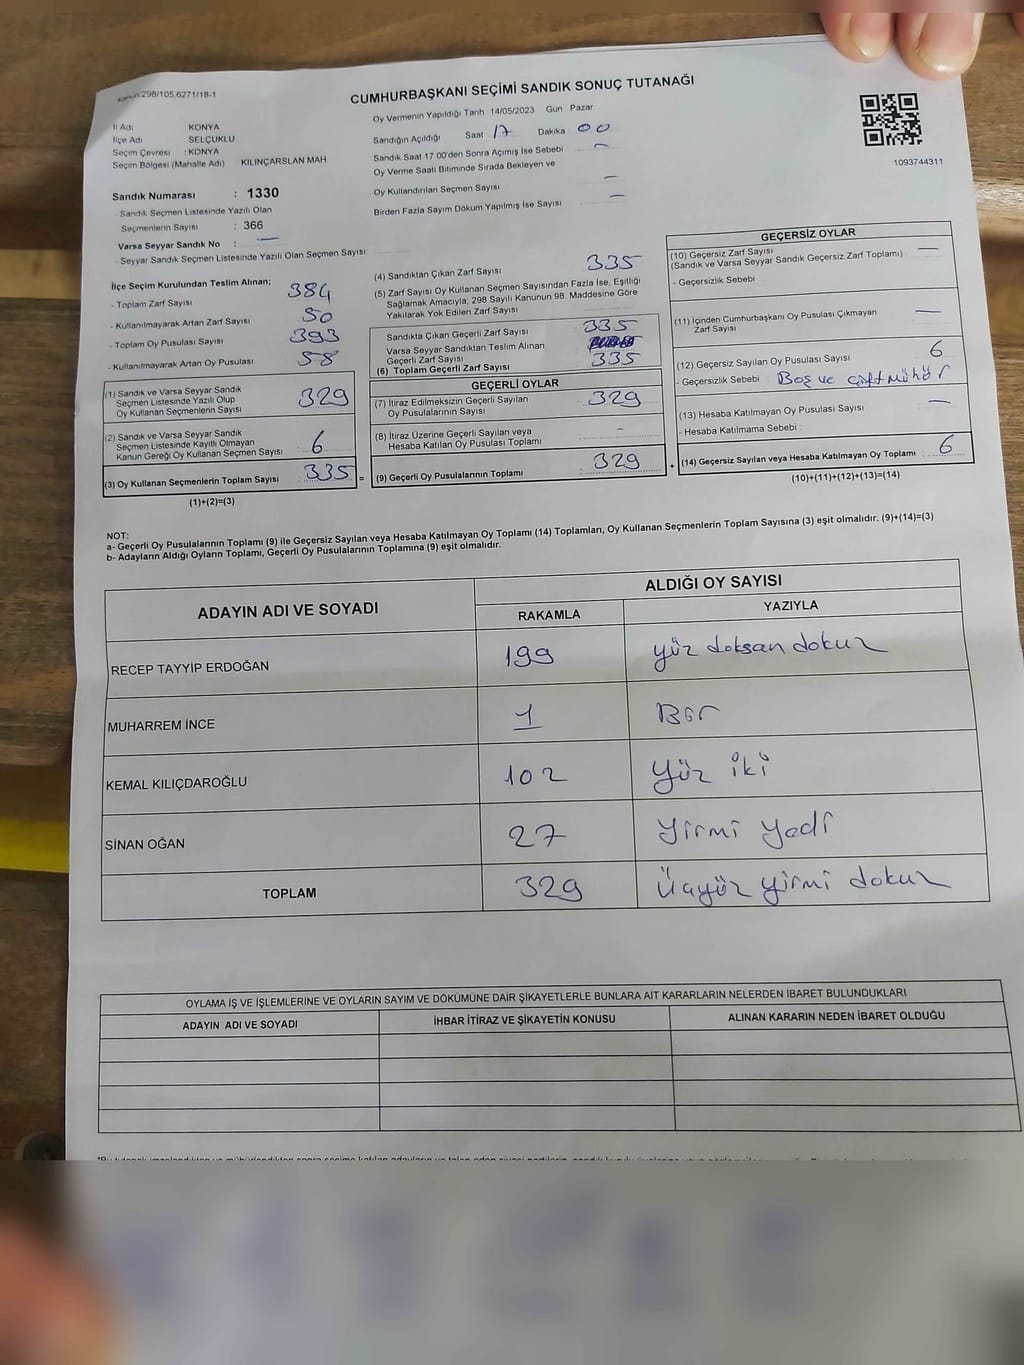 Kanun 298/105,6271/18-1
CUMHURBAŞKANI SEÇİMİ SANDIK SONUÇ TUTANAĞI
İl Adı KONYA
İlçe Adı SELÇUKLU
Seçim Çevresi : KONYA
Seçim Bölgesi (Mahalle Adı) KILINÇARSLAN MAH
Oy Vermenin Yapıldığı Tarih 14/05/2023 Gün Pazar
Sandığın Açıldığı Saat 17 Dakika 00
Sandık Saat 17 00'den Sonra Açımış İse Sebebi
Oy Verme Saati Bitiminde Sırada Bekleyen ve
Oy Kullandırılan Seçmen Sayısı —
Birden Fazla Sayım Döküm Yapılmış İse Sayısı —
1093744311
Sandık Numarası : 1330
- Sandık Seçmen Listesinde Yazılı Olan
Seçmenlerin Sayısı : 366
Varsa Seyyar Sandık No : —
- Seyyar Sandık Seçmen Listesinde Yazılı Olan Seçmen Sayısı:
İlçe Seçim Kurulundan Teslim Alınan;
- Toplam Zarf Sayısı 384
- Kullanılmayarak Artan Zarf Sayısı 50
- Toplam Oy Pusulası Sayısı 393
- Kullanılmayarak Artan Oy Pusulası 58
(1) Sandık ve Varsa Seyyar Sandık
Seçmen Listesinde Yazılı Olup
Oy Kullanan Seçmenlerin Sayısı 329
(2) Sandık ve Varsa Seyyar Sandık
Seçmen Listesinde Kayıtlı Olmayan
Kanun Gereği Oy Kullanan Seçmen Sayısı 6
(3) Oy Kullanan Seçmenlerin Toplam Sayısı : 335 =
(1)+(2)=(3)
(4) Sandıktan Çıkan Zarf Sayısı 335
(5) Zarf Sayısı Oy Kullanan Seçmen Sayısından Fazla İse, Eşitliği
Sağlamak Amacıyla, 298 Sayılı Kanunun 98. Maddesine Göre
Yakılarak Yok Edilen Zarf Sayısı
Sandıkta Çıkan Geçerli Zarf Sayısı 335
Varsa Seyyar Sandıktan Teslim Alınan
Geçerli Zarf Sayısı
(6) Toplam Geçerli Zarf Sayısı 335
GEÇERLİ OYLAR
(7) İtiraz Edilmeksizin Geçerli Sayılan
Oy Pusulalarının Sayısı : 329
(8) İtiraz Üzerine Geçerli Sayılan veya
Hesaba Katılan Oy Pusulası Toplamı : -
(9) Geçerli Oy Pusulalarının Toplamı : 329 +
GEÇERSİZ OYLAR
(10) Geçersiz Zarf Sayısı —
(Sandık ve Varsa Seyyar Sandık Geçersiz Zarf Toplamı)
- Geçersizlik Sebebi
(11) İçinden Cumhurbaşkanı Oy Pusulası Çıkmayan —
Zarf Sayısı
(12) Geçersiz Sayılan Oy Pusulası Sayısı 6
- Geçersizlik Sebebi : Boş ve çift mühür
(13) Hesaba Katılmayan Oy Pusulası Sayısı —
- Hesaba Katılmama Sebebi :
(14) Geçersiz Sayılan veya Hesaba Katılmayan Oy Toplamı : 6
(10)+(11)+(12)+(13)=(14)
NOT:
a- Geçerli Oy Pusulalarının Toplamı (9) ile Geçersiz Sayılan veya Hesaba Katılmayan Oy Toplamı (14) Toplamları, Oy Kullanan Seçmenlerin Toplam Sayısına (3) eşit olmalıdır. (9)+(14)=(3)
b- Adayların Aldığı Oyların Toplamı, Geçerli Oy Pusulalarının Toplamına (9) eşit olmalıdır.
ADAYIN ADI VE SOYADI
ALDIĞI OY SAYISI
RAKAMLA YAZIYLA
RECEP TAYYİP ERDOĞAN 199 yüz doksan dokuz
MUHARREM İNCE 1 Bir
KEMAL KILIÇDAROĞLU 102 Yüz iki
SİNAN OĞAN 27 Yirmi Yedi
TOPLAM 329 Üçyüz yirmi dokuz
OYLAMA İŞ VE İŞLEMLERİNE VE OYLARIN SAYIM VE DÖKÜMÜNE DAİR ŞİKAYETLERLE BUNLARA AİT KARARLARIN NELERDEN İBARET BULUNDUKLARI
ADAYIN ADI VE SOYADI İHBAR İTİRAZ VE ŞİKAYETİN KONUSU ALINAN KARARIN NEDEN İBARET OLDUĞU